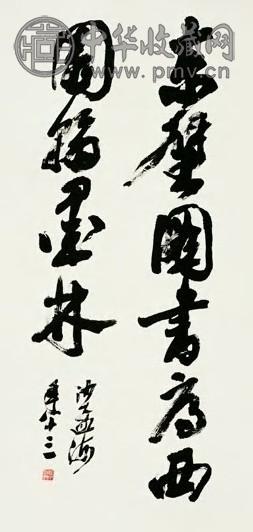 中华收藏网
www.pmv.cn
東壁圖書府西
園翰墨林
沙孟海
年八十三